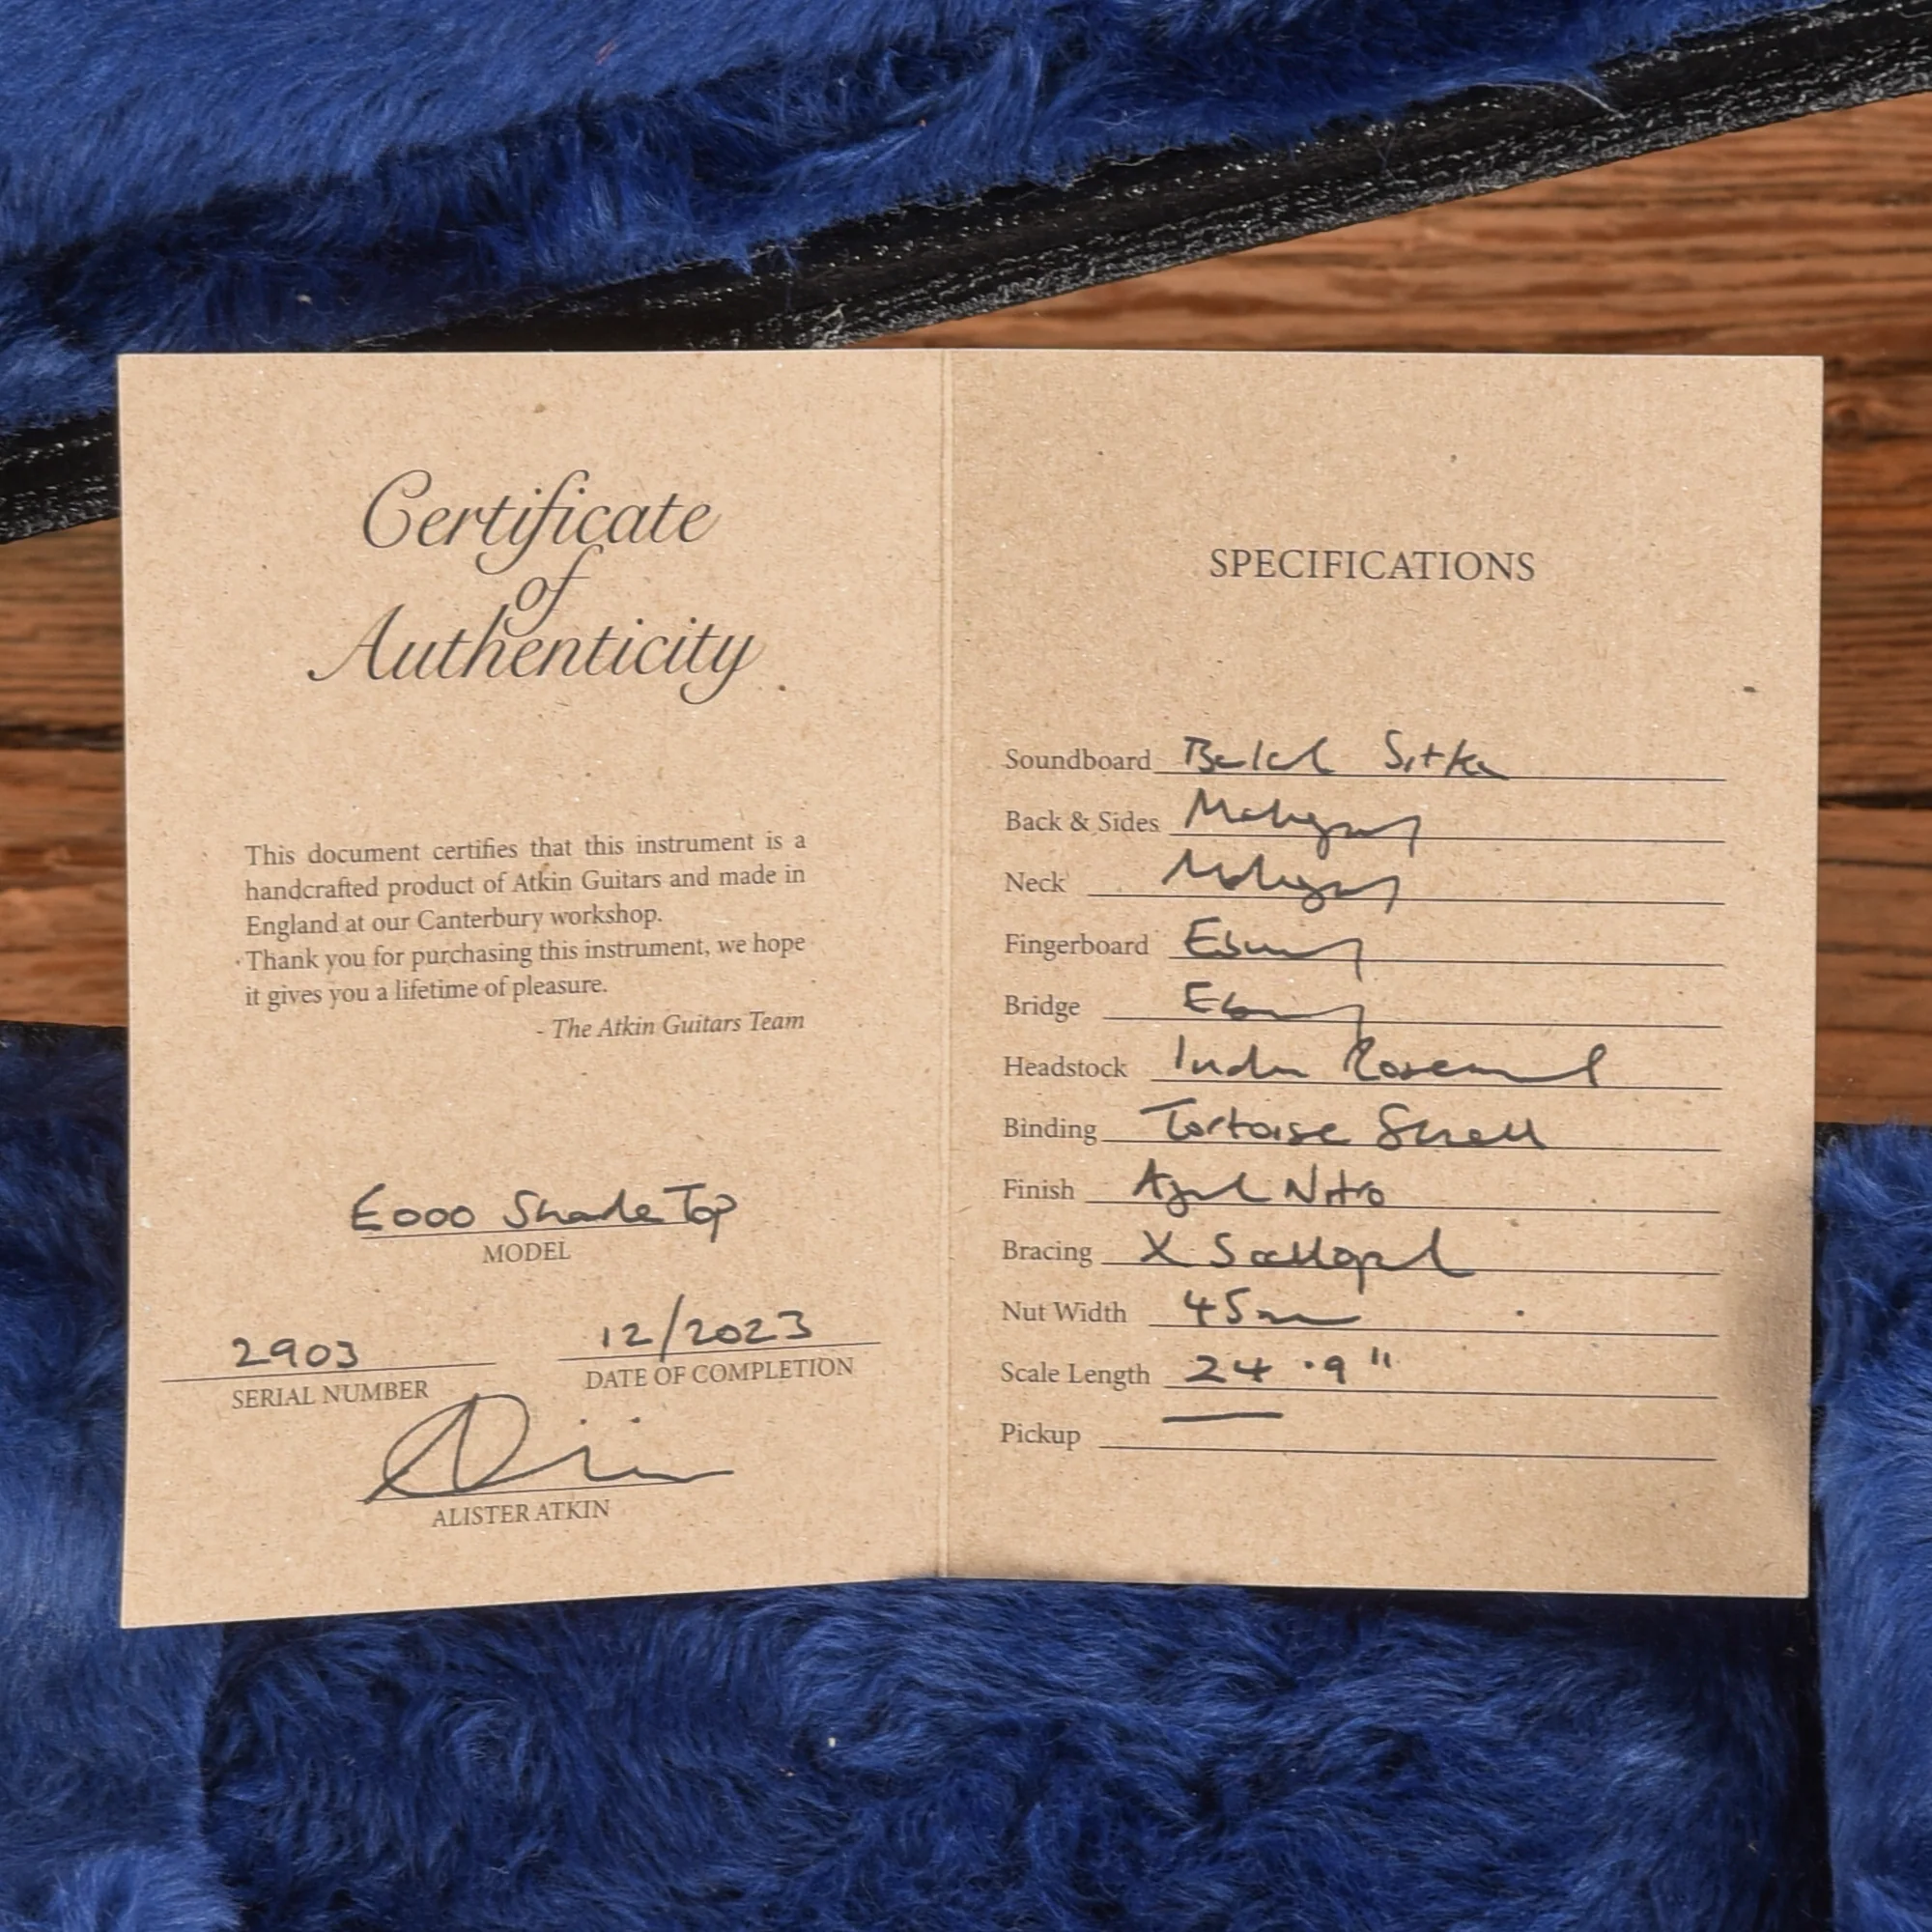 Certificate
of
Authenticity
This document certifies that this instrument is a
handcrafted product of Atkin Guitars and made in
England at our Canterbury workshop.
Thank you for purchasing this instrument, we hope
it gives you a lifetime of pleasure.
- The Atkin Guitars Team
E000 Shade Top
MODEL
2903
SERIAL NUMBER
12/2023
DATE OF COMPLETION
ALISTER ATKIN
SPECIFICATIONS
Soundboard Baked Sitka
Back & Sides Mahogany
Neck Mahogany
Fingerboard Ebony
Bridge Ebony
Headstock Indian Rosewood
Binding Tortoise Shell
Finish Aged Nitro
Bracing X Scalloped
Nut Width 45mm
Scale Length 24.9"
Pickup —